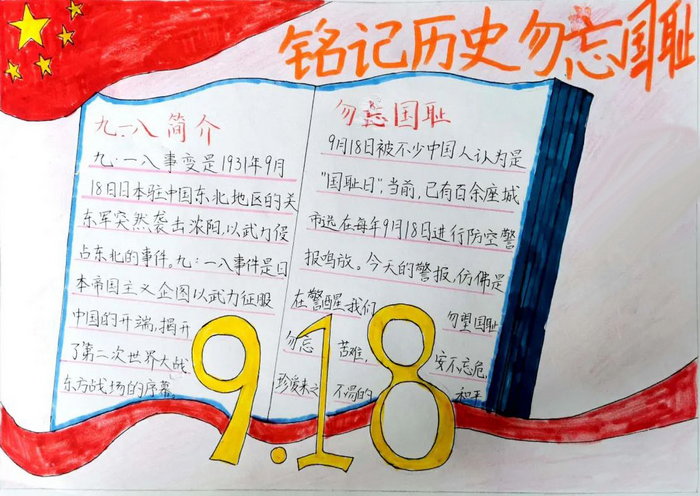 铭记历史勿忘国耻
九·一八简介
九·一八事变是1931年9月
18日日本驻中国东北地区的关
东军突然袭击沈阳,以武力侵
占东北的事件。九·一八事件是日
本帝国主义企图以武力征服
中国的开端,揭开
了第二次世界大战
东方战场的序幕。
勿忘国耻
9月18日被不少中国人认为是
"国耻日"。当前,已有百余座城
市选在每年9月18日进行防空警
报鸣放。今天的警报,仿佛是
在警醒我们
勿忘国耻
勿忘 苦难,安不忘危,
珍爱来之 不易的 和平
9.18